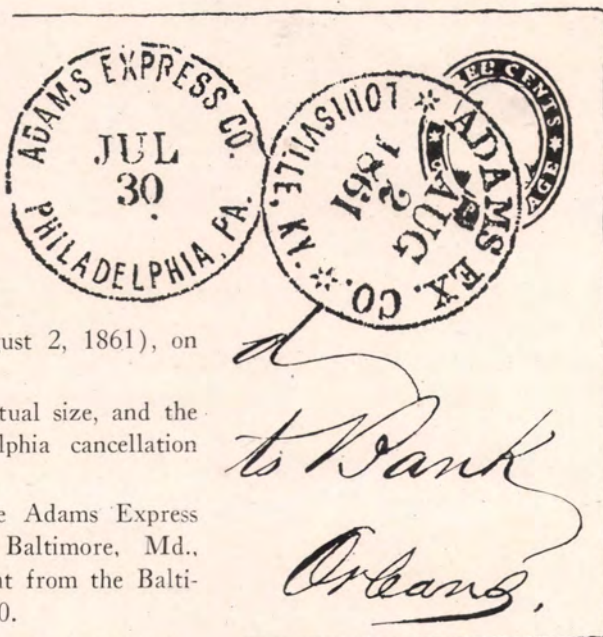 ADAMS EXPRESS CO.
JUL
30
PHILADELPHIA, PA.
ADAMS EX. CO.
AUG
2
1861
* LOUISVILLE, KY. *
CENTS *
AGE
ust 2, 1861), on
tual size, and the
lphia cancellation
e Adams Express
Baltimore, Md.,
nt from the Balti-
0.
to Bank
Orleans.